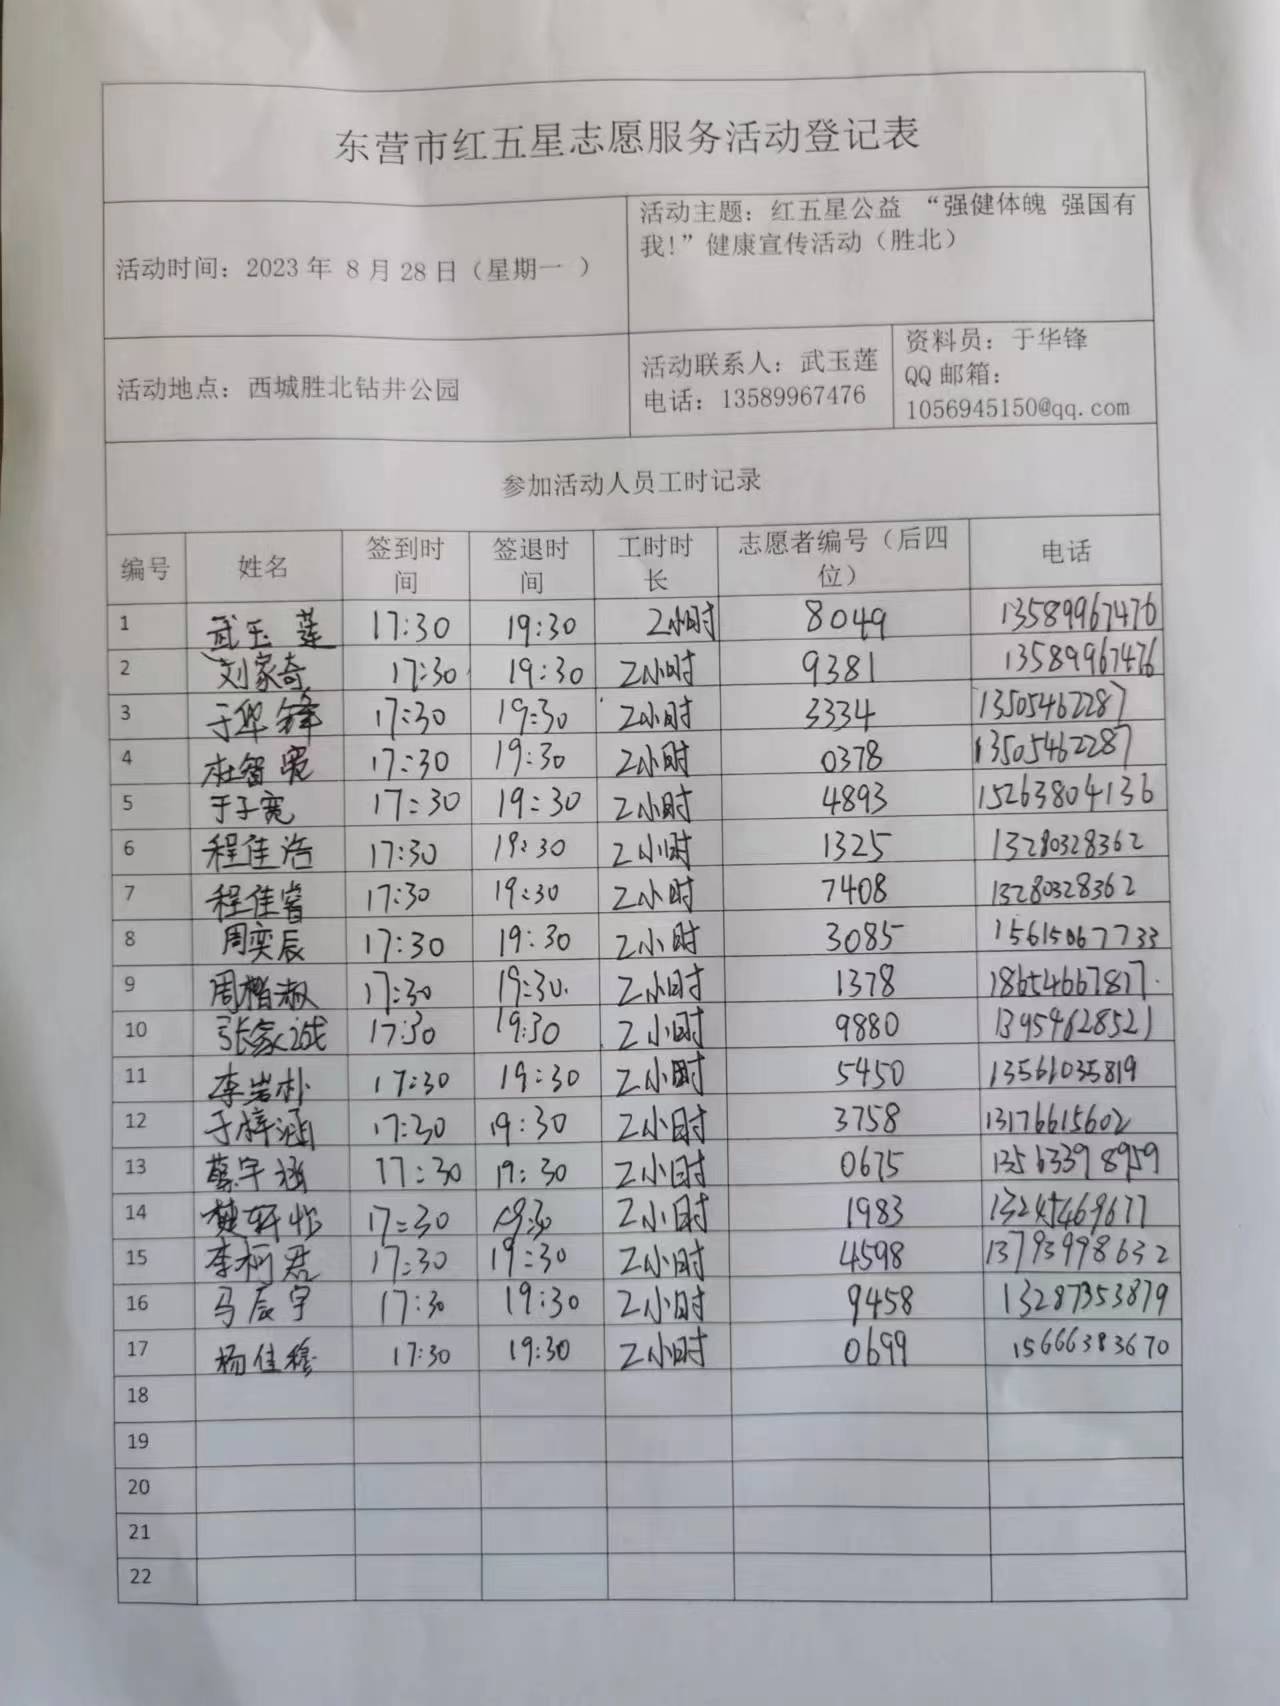 东营市红五星志愿服务活动登记表
活动时间：2023年 8月28日（星期一 ）
活动主题：红五星公益 “强健体魄 强国有
我!”健康宣传活动（胜北）
活动地点：西城胜北钻井公园
活动联系人：武玉莲
电话：13589967476
资料员：于华锋
QQ邮箱：
1056945150@qq.com
参加活动人员工时记录
编号 姓名 签到时间 签退时间 工时时长 志愿者编号（后四位） 电话
1 武玉莲 17:30 19:30 2小时 8049 13589967476
2 刘家奇 17:30 19:30 2小时 9381 13589967476
3 于华锋 17:30 19:30 2小时 3334 13505462287
4 杜智宽 17:30 19:30 2小时 0378 13505462287
5 于子宽 17:30 19:30 2小时 4893 15263804136
6 程佳浩 17:30 19:30 2小时 1325 13280328362
7 程佳睿 17:30 19:30 2小时 7408 13280328362
8 周奕辰 17:30 19:30 2小时 3085 15615067733
9 周楷淑 17:30 19:30 2小时 1378 18654667817
10 张家诚 17:30 19:30 2小时 9880 13954628521
11 李岩朴 17:30 19:30 2小时 5450 13561035819
12 于梓涵 17:30 19:30 2小时 3758 13176615602
13 蔡宇涵 17:30 19:30 2小时 0675 13563398959
14 17:30 19:30 2小时 1983 13245469677
15 李柯君 17:30 19:30 2小时 4598 13793998632
16 马辰宇 17:30 19:30 2小时 9458 13287353879
17 杨佳穆 17:30 19:30 2小时 0699 15666383670
18
19
20
21
22